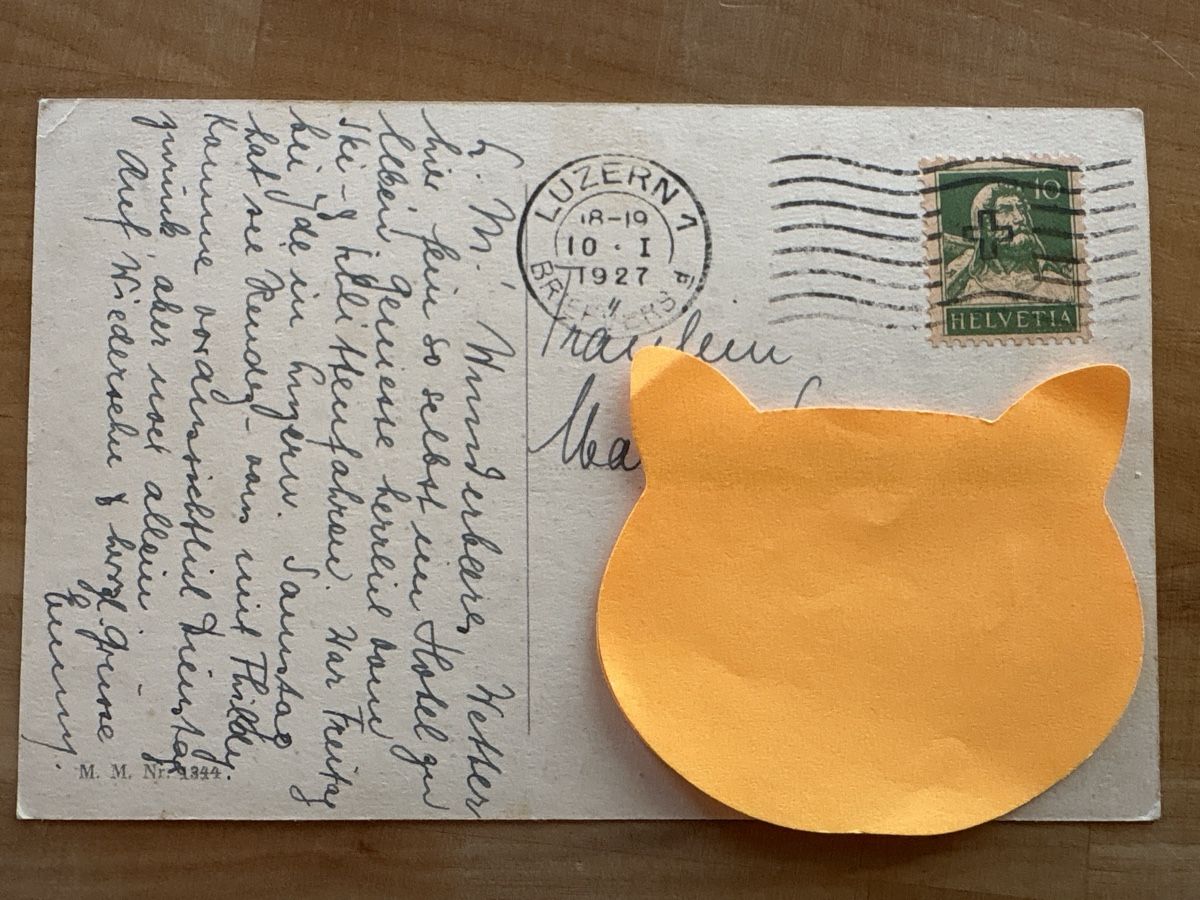 L. M. Wunderbares Wetter
hier fein so selbst im Hotel zu
leben geniesse herrlich vom
Ski- & Schlittenfahren. War Freitag
bei in Lungern. Samstag
hat sie Rendez-vous mit Thildy.
Komme voraussichtlich Dienstag
zurück aber nicht allein
Auf Wiedersehn & herzl. Grüsse
Emmy.
M. M. Nr. 1344
LUZERN 1
18-19
10 · I
1927
BRIEFVERS
10
HELVETIA
Fräulein